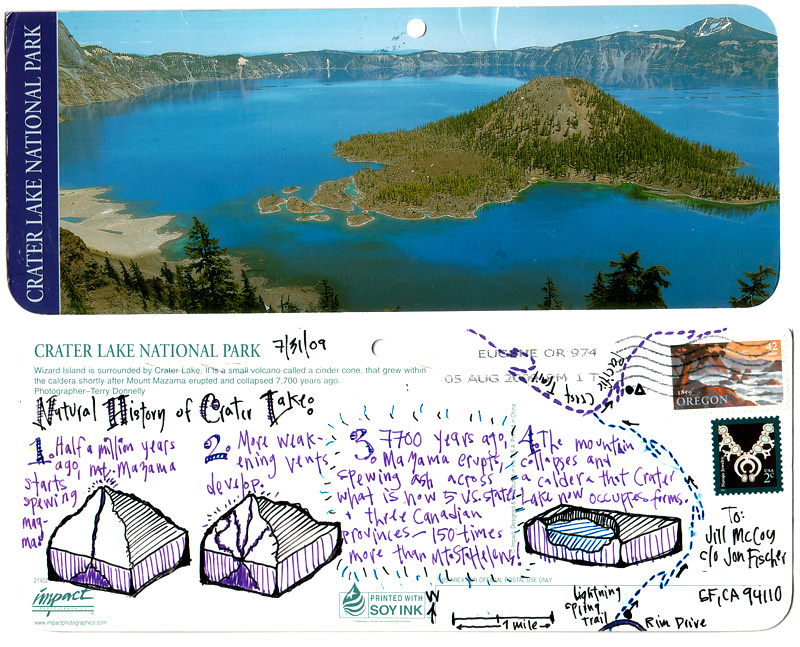 CRATER LAKE NATIONAL PARK
CRATER LAKE NATIONAL PARK
7/31/09
Wizard Island is surrounded by Crater Lake. It is a small volcano called a cinder cone, that grew within
the caldera shortly after Mount Mazama erupted and collapsed 7,700 years ago.
Photographer–Terry Donnelly
EUGENE OR 974
05 AUG PM 1 T
Pacific Crest Trail
42
1859
OREGON
USA
2c
Natural History of Crater Lake:
1. Half a million years
ago, mt. Mazama
starts
spewing
mag-
ma
2. More weak-
ening vents
develop.
3. 7700 years ago,
Mazama erupts,
spewing ash across
what is now 5 U.S. states
+ three Canadian
provinces – 150 times
more than Mt. St. Helens!
4. The mountain
collapses and
a caldera that Crater
Lake now occupies forms.
To:
Jill McCoy
c/o Jon Fischer
SF, CA 94110
impact
www.impactphotographics.com
PRINTED WITH
SOY INK
OFFICIAL POSTAL USE ONLY
W
1 mile
Lightning
Spring
Trail
Rim Drive